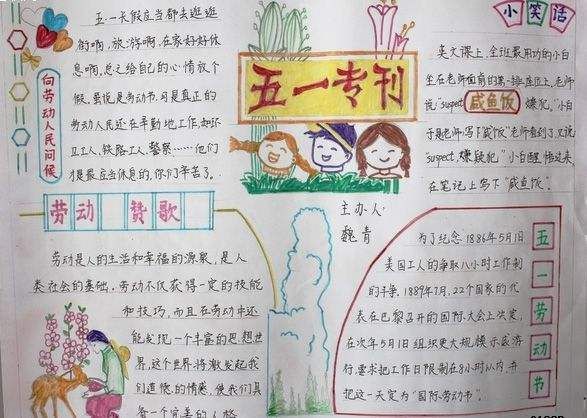 向劳动人民问候
五一长假应当都去逛逛
街啊,旅游啊,在家好好休
息啊,总之给自己的心情放个
假。虽说是劳动节,可是真正的
劳动人民还在辛勤地工作,如环
卫工人、铁路工人、警察……他们
才是最应当休息的,你们辛苦了。
五一专刊
主办人:
魏青
小笑话
英文课上,全班最用功的小白
坐在老师面前的第一排座位上,老师
说:suspect嫌犯,“小白
咸鱼饭
于是老师写下“咸鱼饭”老师看到了又说
suspect,嫌疑犯”小白醒悟过来
在笔记上写下“咸鱼饭”。
劳动赞歌
劳动是人的生活和幸福的源泉,是人
类社会的基础。劳动不仅获得一定的技能
和技巧,而且在劳动中还
能发现一个丰富的思想世
界,这个世界将激发起我
们道德的情感,使我们具
备一个完美的人格
五一劳动节
为了纪念1886年5月1日
美国工人的争取八小时工作制
的斗争,1889年7月,22个国家的代
表在巴黎召开的国际大会上决定,
在次年5月1日组织更大规模示威游
行要求把工作日限制在8小时以内,并
把这一天定为“国际劳动节”。